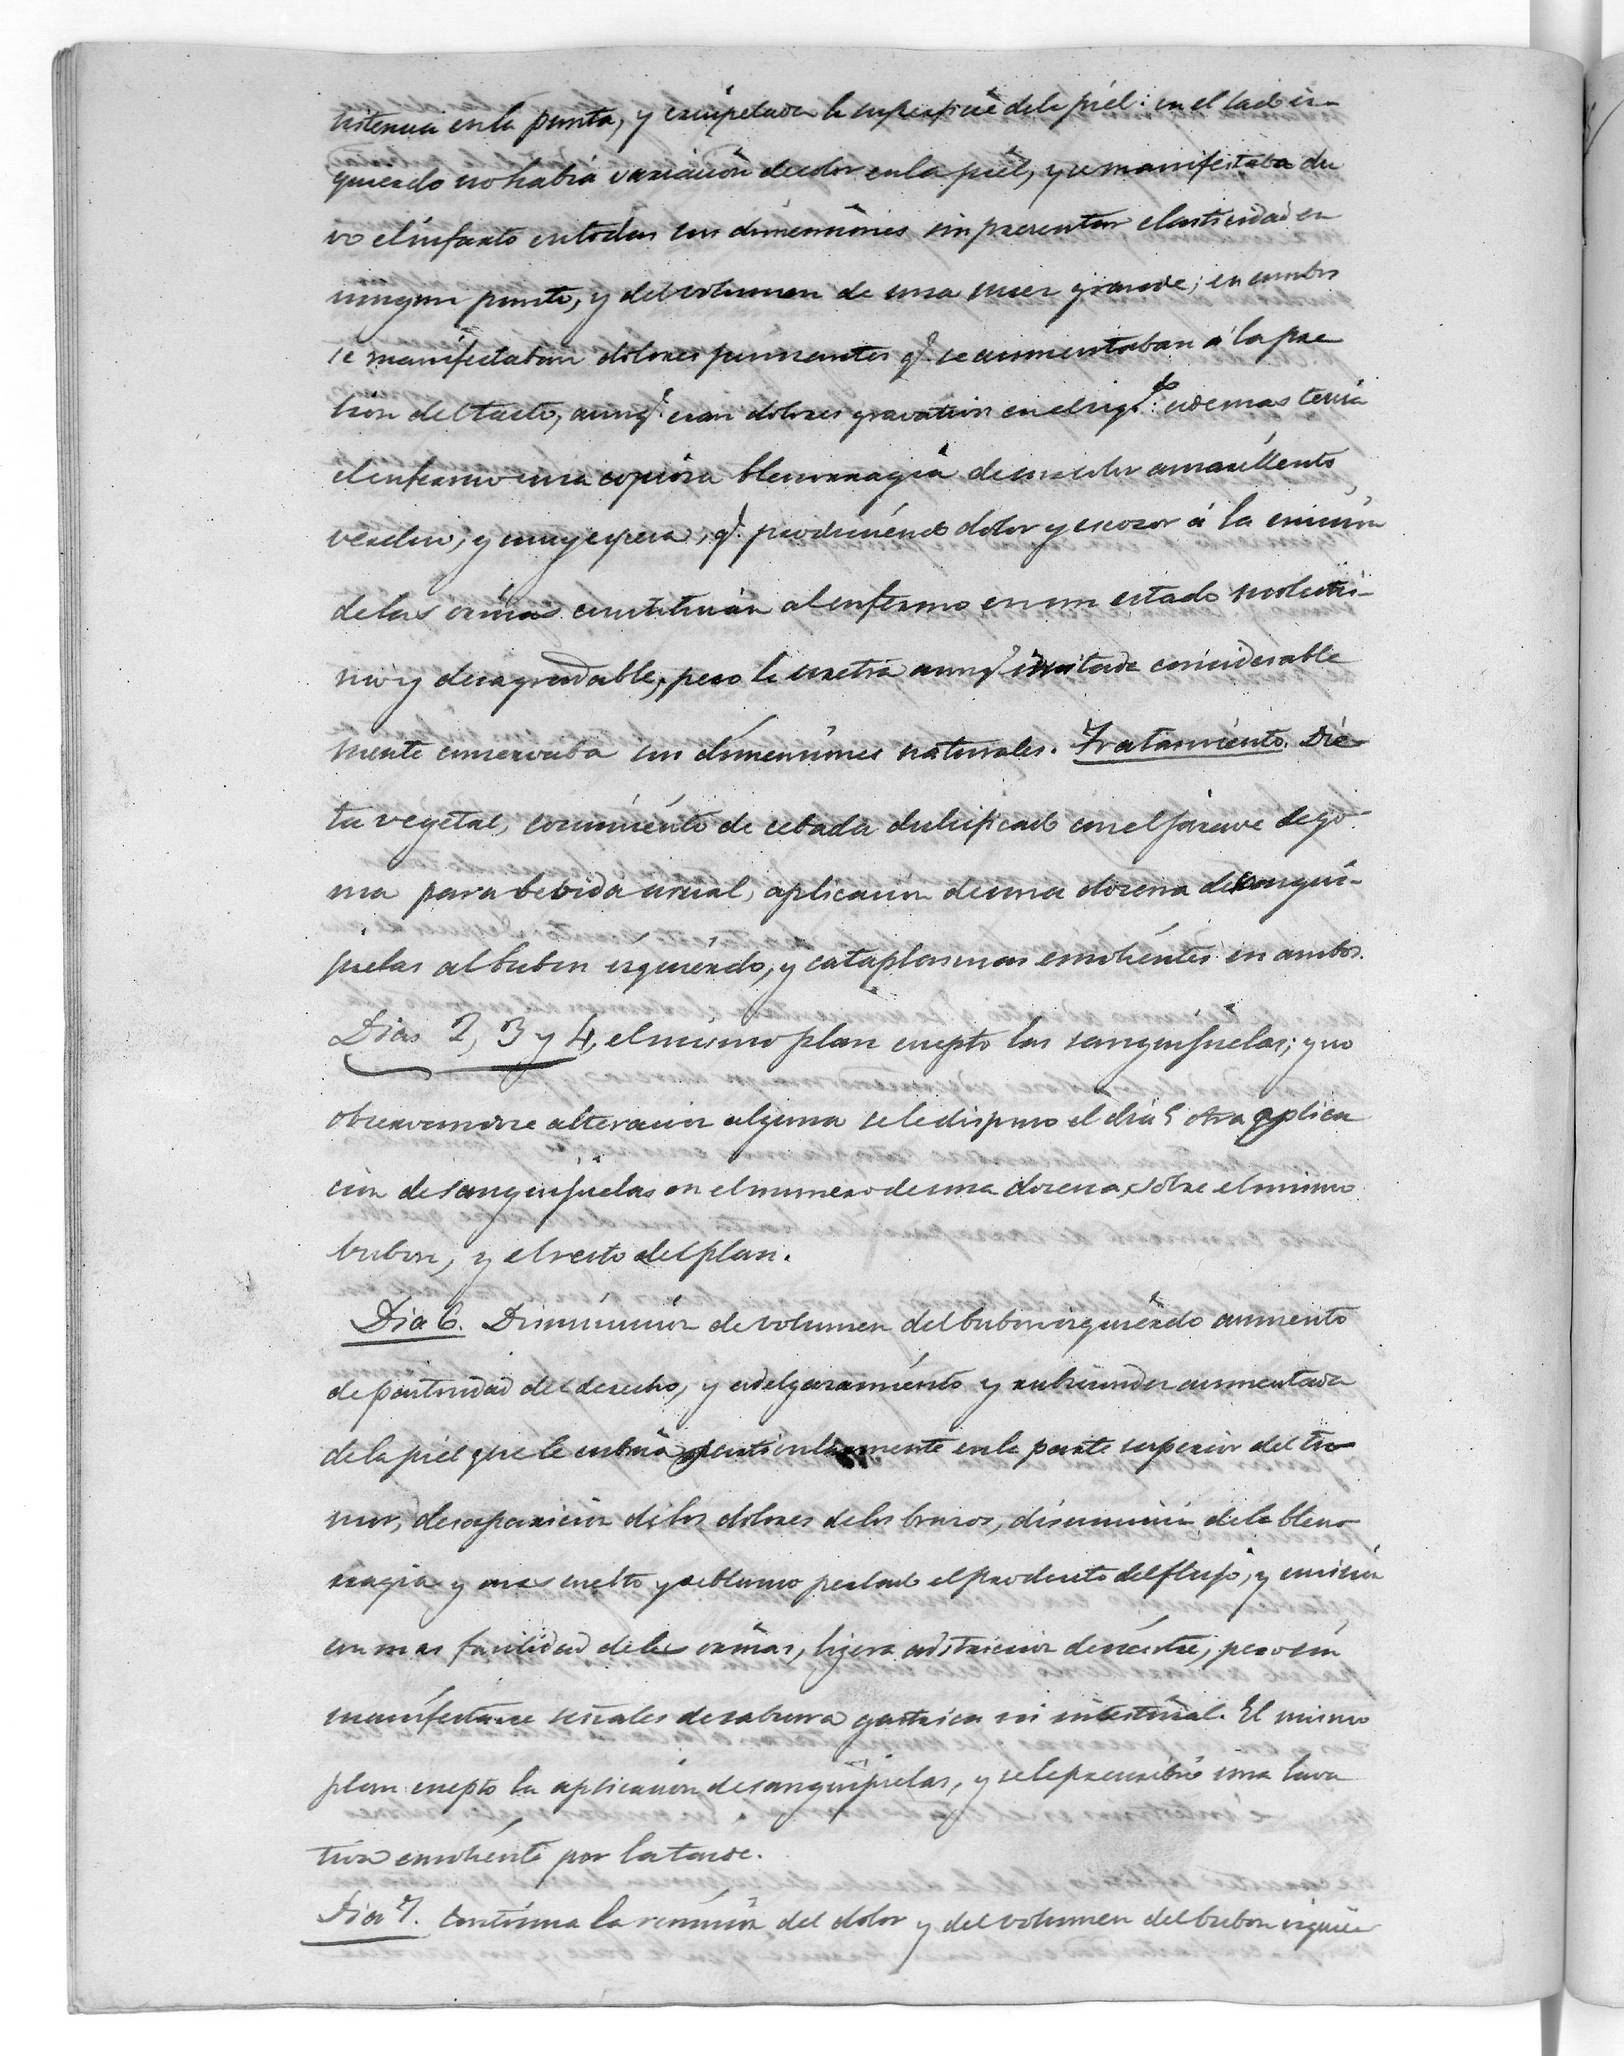 sistencia en la punta, y erisipelada la superficie de la piel: en el lado iz-
quierdo no habia variacion de color en la piel, y se manifestaba du
ro el infarto en todas sus dimensiones sin presentar elasticidad en
ningun punto, y del volumen de una nuez grande; en ambos
se manifestaban dolores punzantes q.e se aumentaban á la pre
sion del tacto, aunq.e eran dolores gravativos en el izq.do: ademas tenia
el enfermo una copiosa blenorragia de un color amarillento
verdoso, y muy espesa, q.e produciendo dolor y escozor á la emision
de las orinas constituian al enfermo en un estado
y desagradable, pero la uretra aunq.e irritada considerable
mente conservaba sus dimensiones naturales. Tratamiento. Die
ta vegetal, cocimiento de cebada dulcificado con el jarave de go
ma para bebida usual, aplicacion de una docena de sangui-
juelas al bubon izquierdo, y cataplasmas emolientes en ambos.
Dias 2, 3 y 4, el mismo plan exepto las sanguijuelas; y no
observandose alteracion alguna se le dispuso el dia 5 otra aplica
cion de sanguijuelas en el numero de una docena, sobre el mismo
bubon, y el resto del plan.
Dia 6. Disminucion de volumen del bubon izquierdo aumento
de pastosidad del derecho, y adelgazamiento y rubicundez aumentada
de la piel que le cubria particularmente en la parte superior del tu
mor, desaparicion de los dolores de los brazos, disminucion de la bleno
rragia y mas suelto y reblanco perlado el producto del flujo, y emision
con mas facilidad de las orinas, ligera adstriccion de vientre, pero sin
manifestarse señales de saburra gastrica ni intestinal. El mismo
plan exepto la aplicacion de sanguijuelas, y se le prescribió una lava
tiva emoliente por la tarde.
Dia 7. Continua la remision del dolor y del volumen del bubon izquier